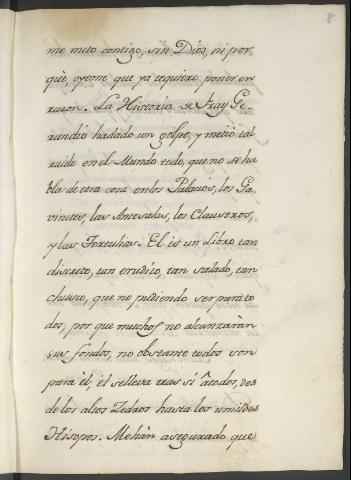 8
me meto contigo, sin Dios, ni por
què, oyeme que ya requiero poner en
razon. La Historia de Fray Ge-
rundio hadado un golpe, y metió tal
ruido en el Mundo todo, que no se ha
bla de otra cosa enlos Palacios, los Ga-
vinetes, las Antesalas, los Claustros,
y las Tertulias. El es un Libro tan
discreto, tan erudito, tan salado, tan
chusco, que no pudiendo ser para to
dos, por que muchos no alcanzaràn
sus fondos, no obstante todos son
para èl, èl selleva tras si âtodos, des
de los altos Zedros hasta los umildes
Hisopos. Mehàn asegurado que